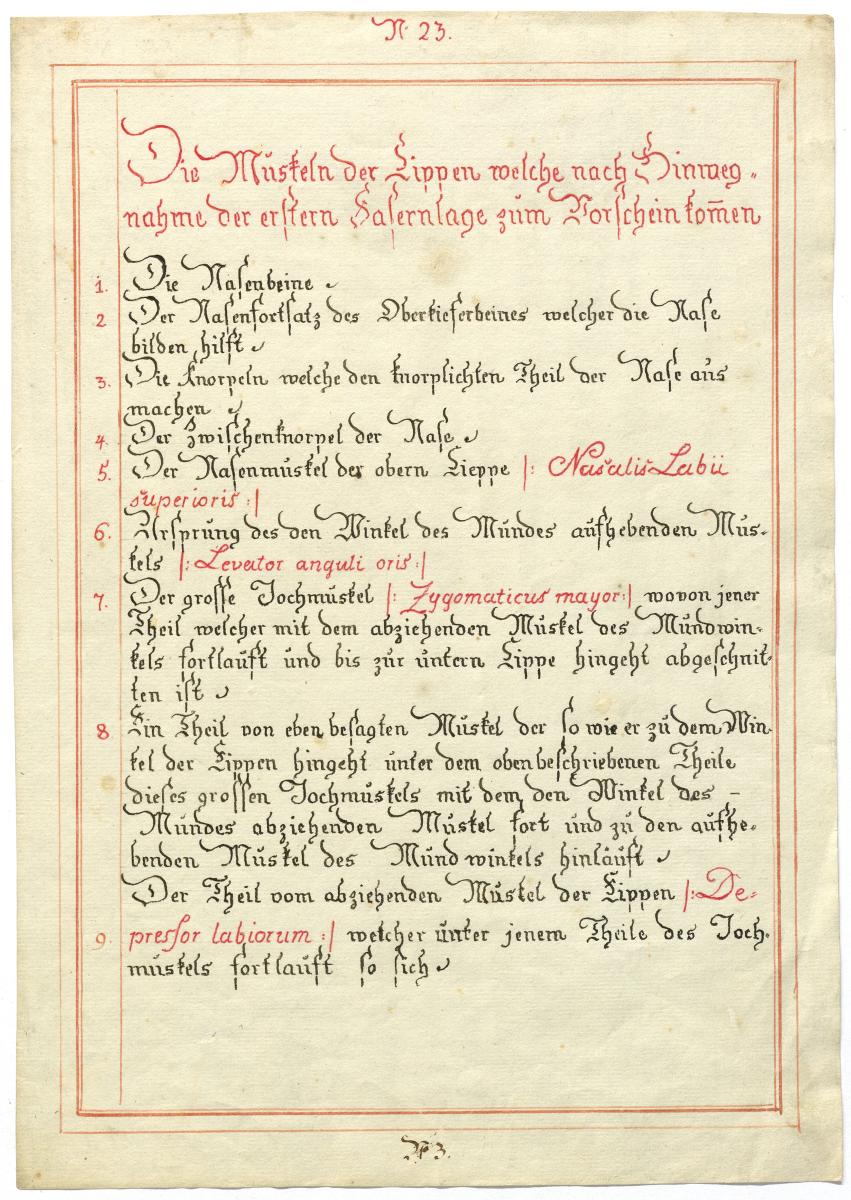 N. 23.
Die Muskeln der Lippen welche nach Hinweg-
nahme der erstern Fasernlage zum Vorschein kom̄en
1. Die Nasenbeine
2 Der Nasenfortsatz des Oberkieferbeines welcher die Nase
bilden hilft
3. Die Knorpeln welche den knorplichten Theil der Nase aus
machen
4. Der Zwischenknorpel der Nase
5. Der Nasenmuskel der obern Lieppe |: Nasalis Labii
superioris :|
6. Ursprung des den Winkel des Mundes aufhebenden Mus-
kels |: Levator anguli oris :|
7. Der grosse Jochmuskel |: Zygomaticus mayor :| wovon jener
Theil welcher mit dem abziehenden Muskel des Mundwin-
kels fortlauft und bis zur untern Lippe hingeht abgeschnit-
ten ist
8 Ein Theil von eben besagten Muskel der so wie er zu dem Win-
kel der Lippen hingeht unter dem obenbeschriebenen Theile
dieses grossen Jochmuskels mit dem den Winkel des –
Mundes abziehenden Muskel fort und zu den aufhe-
benden Muskel des Mundwinkels hinläuft
Der Theil vom abziehenden Muskel der Lippen |: De-
9. pressor labiorum :| welcher unter jenem Theile des Joch-
muskels fortlauft so sich
N 3.